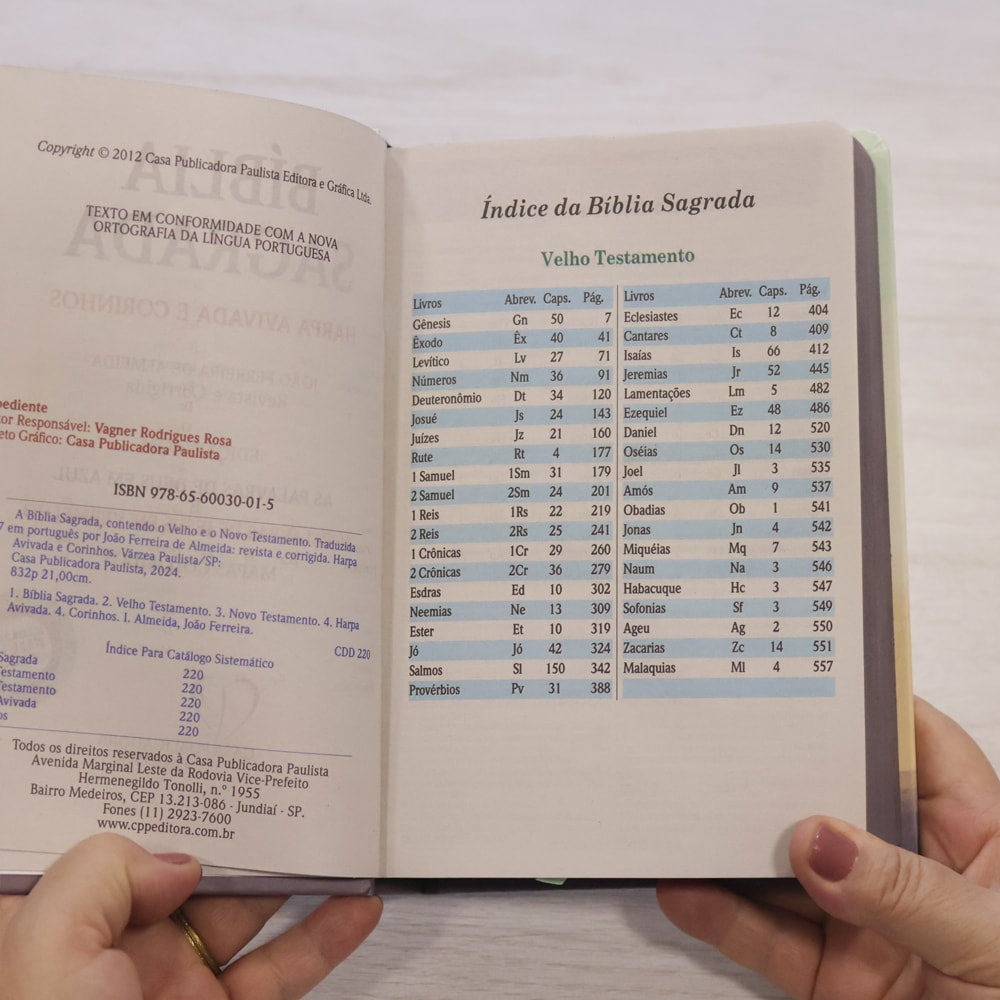 Copyright © 2012 Casa Publicadora Paulista Editora e Gráfica Ltda.
TEXTO EM CONFORMIDADE COM A NOVA
ORTOGRAFIA DA LÍNGUA PORTUGUESA
Responsável: Vagner Rodrigues Rosa
Gráfico: Casa Publicadora Paulista
ISBN 978-65-60030-01-5
A Bíblia Sagrada, contendo o Velho e o Novo Testamento. Traduzida
em português por João Ferreira de Almeida: revista e corrigida. Harpa
Avivada e Corinhos. Várzea Paulista/SP:
Casa Publicadora Paulista, 2024.
832p 21,00cm.
1. Bíblia Sagrada. 2. Velho Testamento. 3. Novo Testamento. 4. Harpa
Avivada. 4. Corinhos. I. Almeida, João Ferreira.
CDD 220
Índice Para Catálogo Sistemático
Sagrada 220
Testamento 220
Testamento 220
Avivada 220
220
Todos os direitos reservados à Casa Publicadora Paulista
Avenida Marginal Leste da Rodovia Vice-Prefeito
Hermenegildo Tonolli, n.º 1955
Bairro Medeiros, CEP 13.213-086 - Jundiaí - SP.
Fones (11) 2923-7600
www.cppeditora.com.br
Índice da Bíblia Sagrada
Velho Testamento
Livros Abrev. Caps. Pág.
Gênesis Gn 50 7
Êxodo Êx 40 41
Levítico Lv 27 71
Números Nm 36 91
Deuteronômio Dt 34 120
Josué Js 24 143
Juízes Jz 21 160
Rute Rt 4 177
1 Samuel 1Sm 31 179
2 Samuel 2Sm 24 201
1 Reis 1Rs 22 219
2 Reis 2Rs 25 241
1 Crônicas 1Cr 29 260
2 Crônicas 2Cr 36 279
Esdras Ed 10 302
Neemias Ne 13 309
Ester Et 10 319
Jó Jó 42 324
Salmos Sl 150 342
Provérbios Pv 31 388
Livros Abrev. Caps. Pág.
Eclesiastes Ec 12 404
Cantares Ct 8 409
Isaías Is 66 412
Jeremias Jr 52 445
Lamentações Lm 5 482
Ezequiel Ez 48 486
Daniel Dn 12 520
Oséias Os 14 530
Joel Jl 3 535
Amós Am 9 537
Obadias Ob 1 541
Jonas Jn 4 542
Miquéias Mq 7 543
Naum Na 3 546
Habacuque Hc 3 547
Sofonias Sf 3 549
Ageu Ag 2 550
Zacarias Zc 14 551
Malaquias Ml 4 557